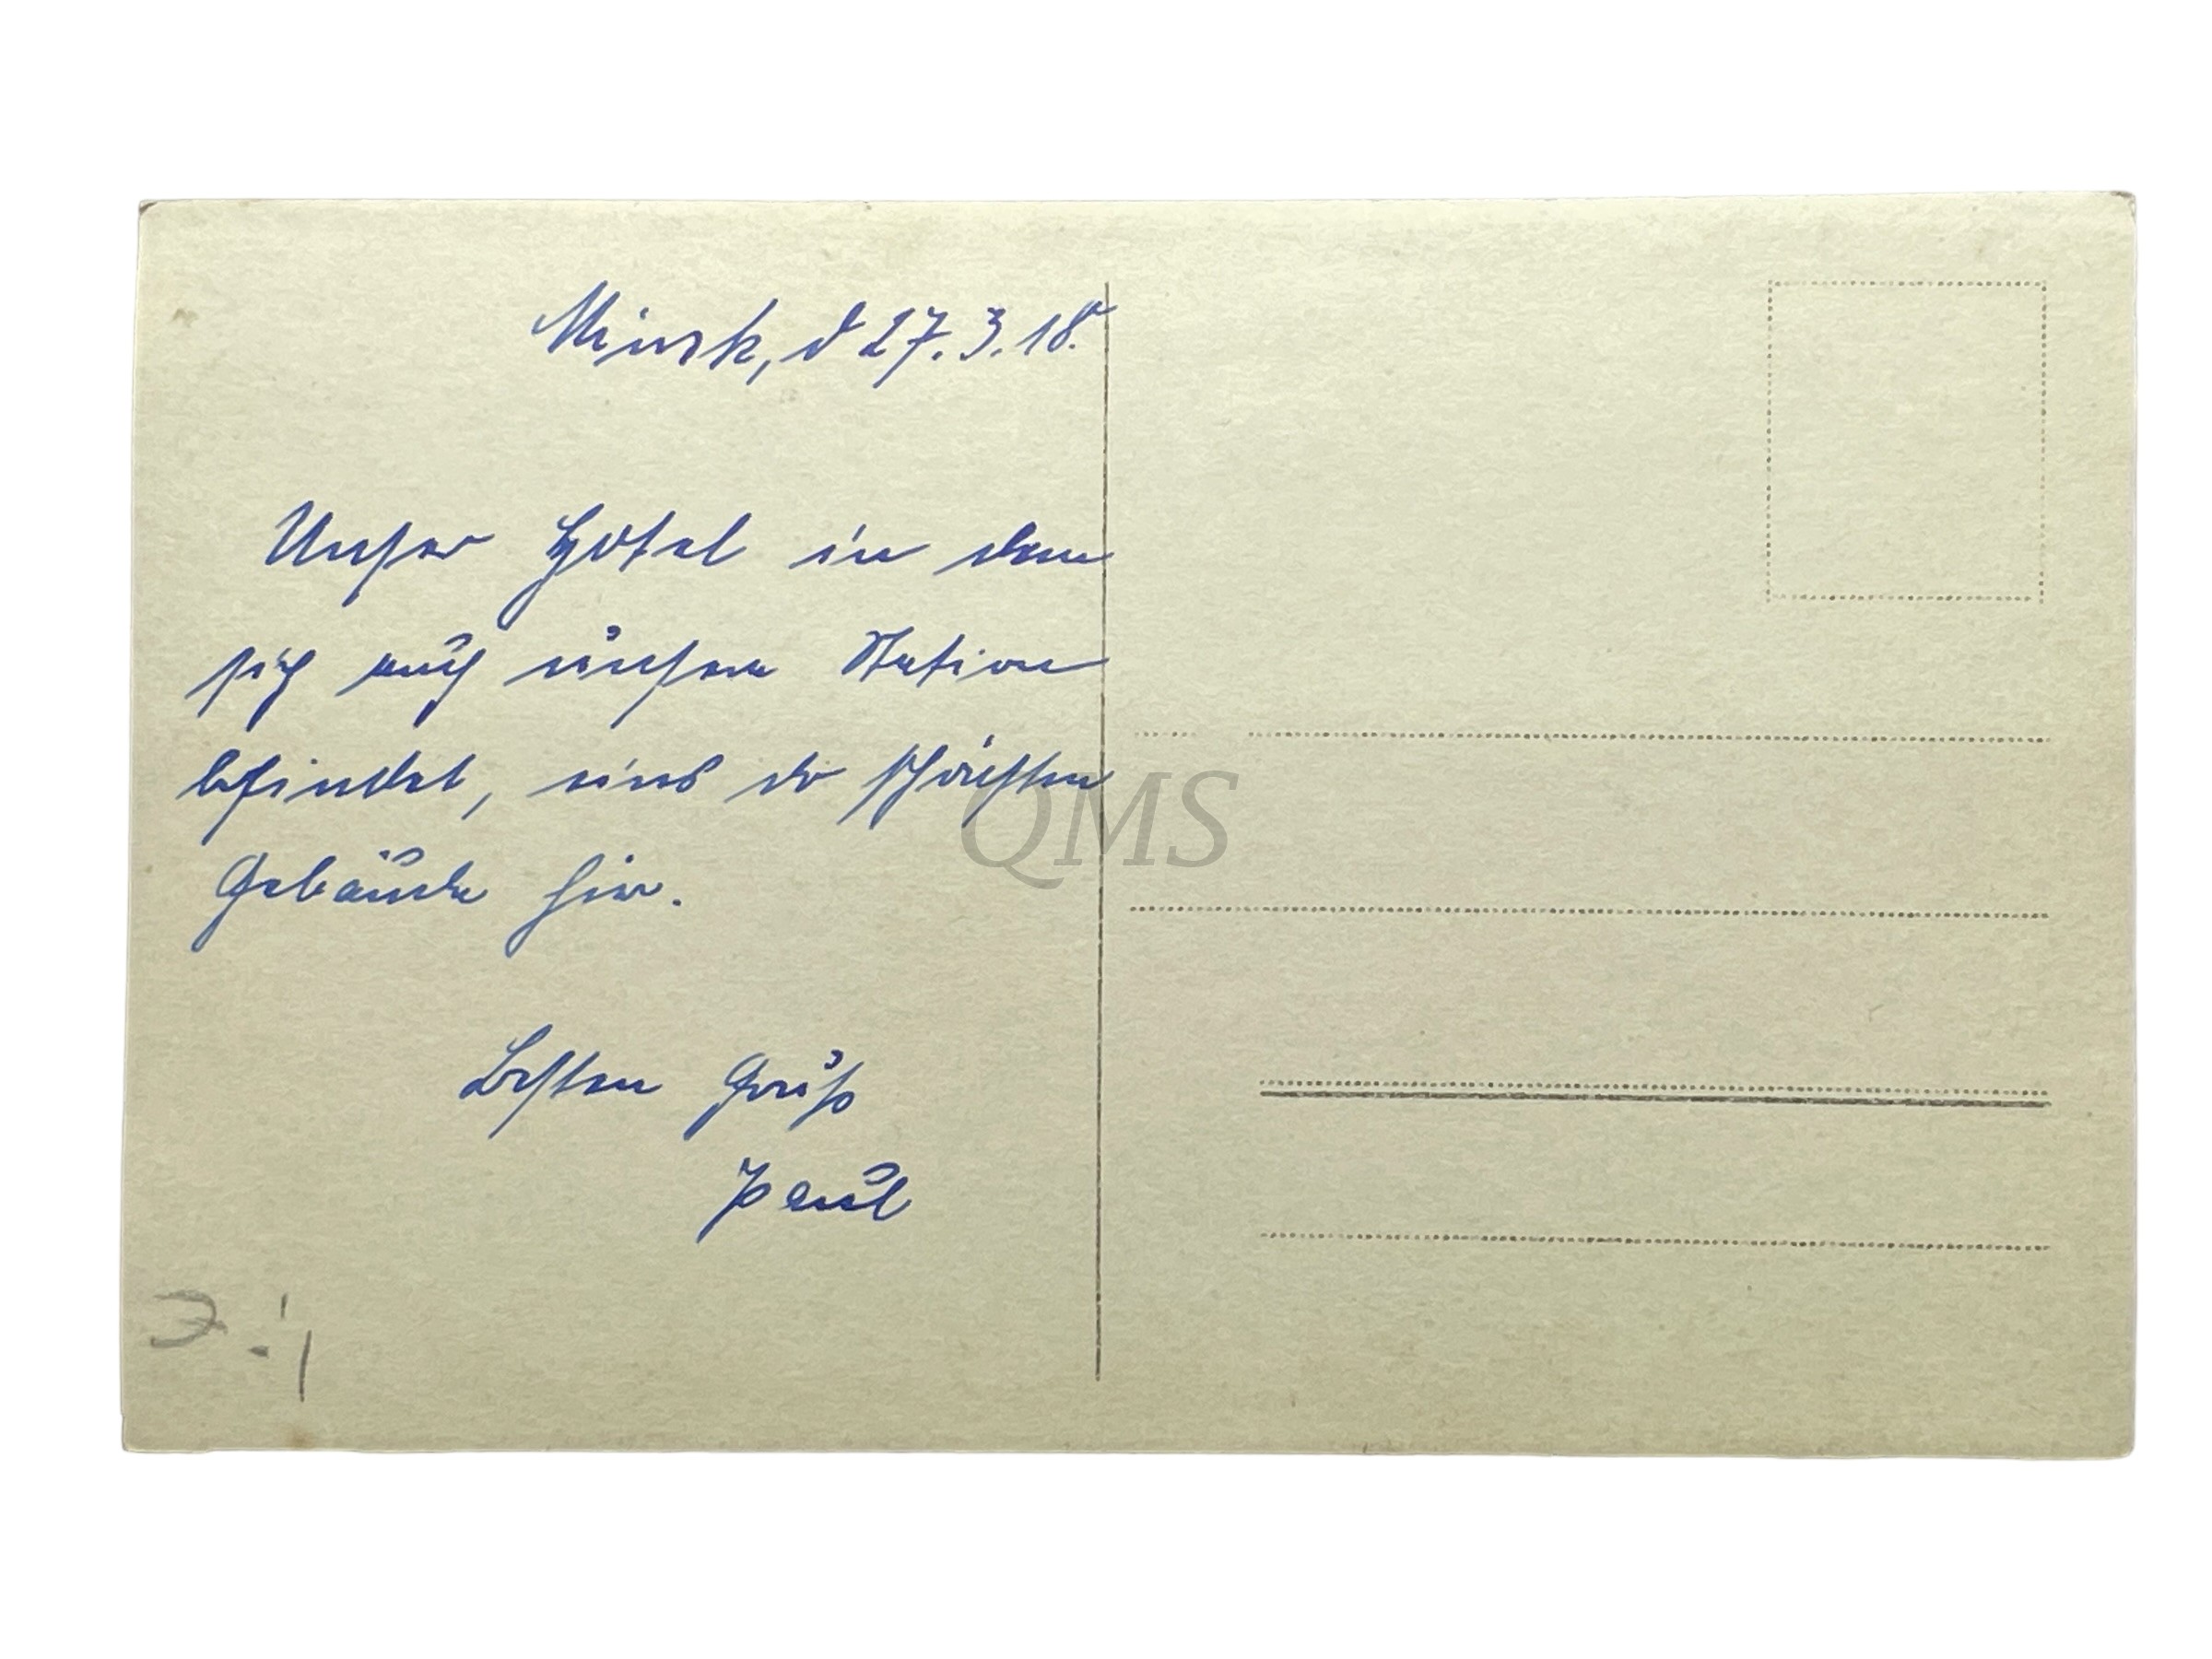 Minsk, d 27.3.18.
Unser Hotel in dem
sich auch unsere Station
befindet, eins der schönsten
Gebäude hier.
Besten Gruß
Paul
QMS